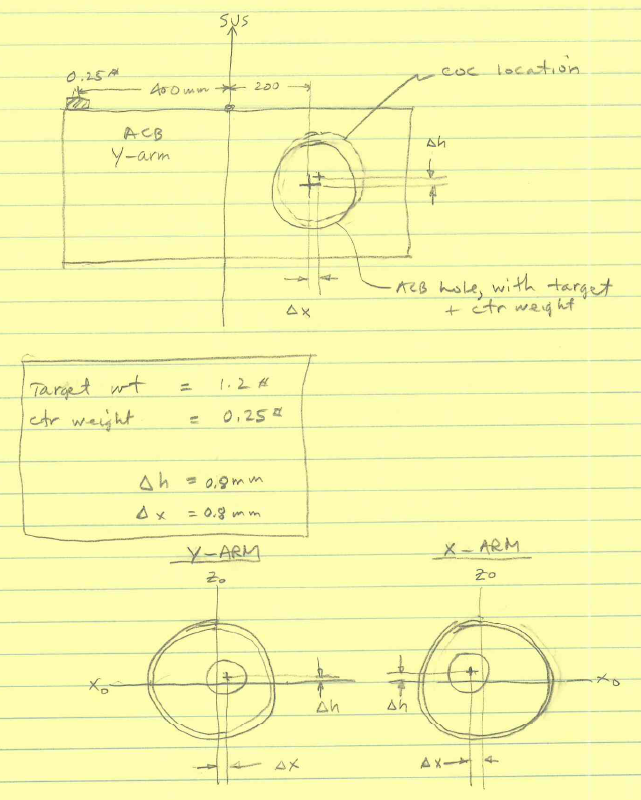 SUS
0.25#
400mm
200
COC location
ACB
Y-arm
Δh
ACB hole, with target
+ ctr weight
Δx
Target wt = 1.2#
ctr weight = 0.25#
Δh = 0.8mm
Δx = 0.8mm
Y-ARM
X-ARM
Z₀
Z₀
X₀
Δh
Δh
X₀
Δx
Δx